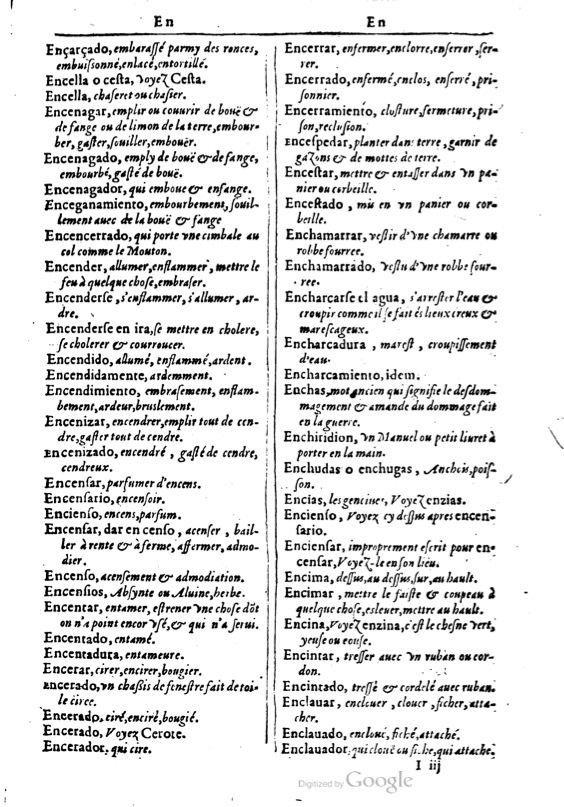 En
Ençarçado, embarassé parmy des ronces,
embuissonné, enlacé, entortillé.
Encella o cesta, voyez Cesta.
Encella, chaseret ou chasier.
Encenagar, emplir ou couurir de bouë &
de fange ou de limon de la terre, embour-
ber, gaster, souiller, embouër.
Encenagado, emply de bouë & de fange,
embourbé, gasté de bouë.
Encenagador, qui emboue & enfange.
Enceganamiento, embourbement, souil-
lement auec de la bouë & fange
Encencerrado, qui porte vne cimbale au
col comme le Mouton.
Encender, allumer, enflammer, mettre le
feu à quelque chose, embraser.
Encenderse, s'enflammer, s'allumer, ar-
dre.
Encenderse en ira, se mettre en cholere,
se cholerer & courroucer.
Encendido, allumé, enflammé, ardent.
Encendidamente, ardemment.
Encendimiento, embrasement, enflam-
bement, ardeur, bruslement.
Encenizar, encendrer, emplir tout de cen-
dre, gaster tout de cendre.
Encenizado, encendré, gasté de cendre,
cendreux.
Encensar, parfumer d'encens.
Encensario, encensoir.
Encienso, encens, parfum.
Encensar, dar en censo, acenser, bail-
ler à rente & à ferme, affermer, admo-
dier.
Encenso, acensement & admodiation.
Encensios, Absynte ou Aluine, herbe.
Encentar, entamer, estrener vne chose dõt
on n'a point encor vsé, & qui n'a serui.
Encentado, entamé.
Encentadura, entameure.
Encerar, cirer, encirer, bougier.
Encerado, vn chassis de fenestre fait de toi-
le ciree.
Encerado, ciré, enciré, bougié.
Encerado, Voyez Cerote.
Encerador, qui cire.
En
Encerrar, enfermer, enclorre, enserrer, ser-
rer.
Encerrado, enfermé, enclos, enserré, pri-
sonnier.
Encerramiento, closture, fermeture, pri-
son, reclusion.
Encespedar, planter dans terre, garnir de
gazons & de mottes de terre.
Encestar, mettre & entasser dans vn pa-
nier ou corbeille.
Encestado, mis en vn panier ou cor-
beille.
Enchamarrar, vestir d'vne chamarre ou
robbe fourree.
Enchamarrado, vestu d'vne robbe four-
ree.
Encharcarse el agua, s'arrester l'eau &
croupir comme il se fait és lieux creux &
marescageux.
Encharcadura, marest, croupissement
d'eau.
Encharcamiento, idem.
Enchas, mot ancien qui signifie le desdom-
magement & amande du dommage fait
en la guerre.
Enchiridion, vn Manuel ou petit liuret à
porter en la main.
Enchudas o enchugas, Anchois, pois-
son.
Encias, les genciues, Voyez enzias.
Encienso, Voyez cy dessus apres encen-
sario.
Enciensar, improprement escrit pour en-
censar, Voyez-le en son lieu.
Encima, dessus, au dessus, sur, au hault.
Encimar, mettre le faiste & coupeau à
quelque chose, esleuer, mettre au hault.
Encina, Voyez enzina, c'est le chesne vert,
yeuse ou eouse.
Encintar, tresser auec vn ruban ou cor-
don.
Encintado, tressé & cordelé auec ruban.
Enclauar, enclouer, clouer, ficher, atta-
cher.
Enclauado, encloué, fiché, attaché.
Enclauador, qui clouë ou fiche, qui attache.
I iij
Digitized by Google